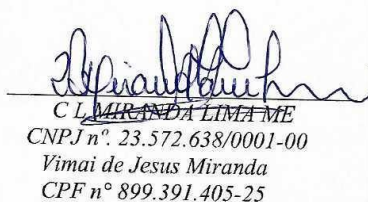 C L MIRANDA LIMA ME
CNPJ nº. 23.572.638/0001-00
Vimai de Jesus Miranda
CPF nº 899.391.405-25